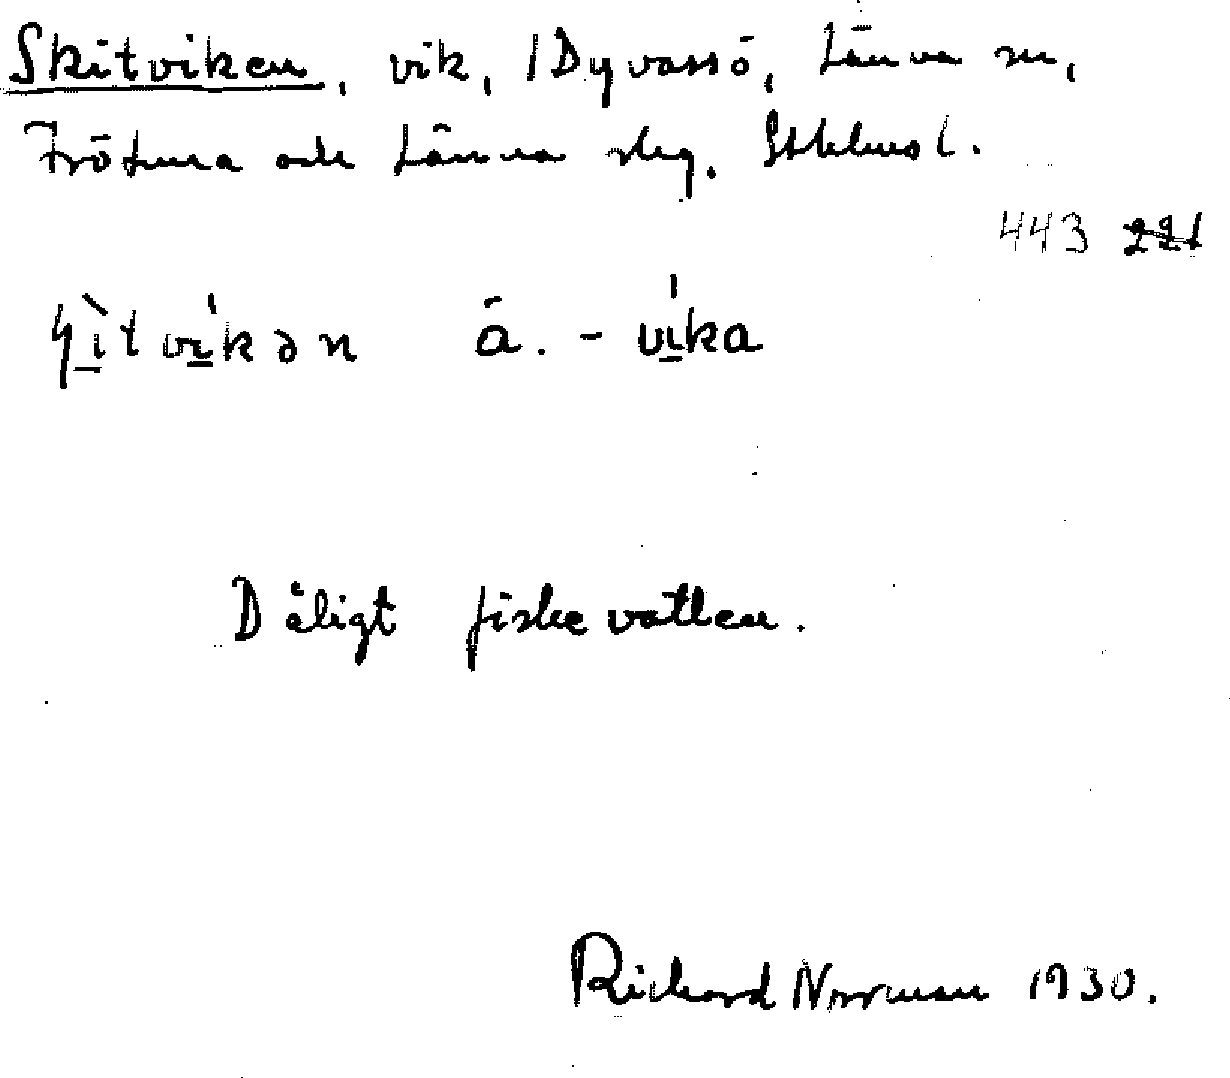 Skitviken, vik, /Dyvassö, Länna sn,
Frötuna och Länna skg. Sthlms l.
443 221
ʃìtvíkən ä. - víka
Dåligt fiskevatten.
Richard Norrman 1930.